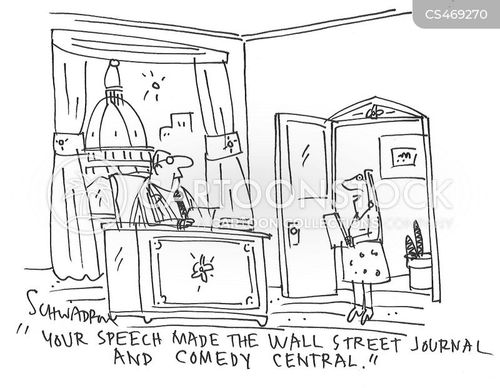 CS469270
CARTOONSTOCK
SCHWADRON
"YOUR SPEECH MADE THE WALL STREET JOURNAL
AND COMEDY CENTRAL."